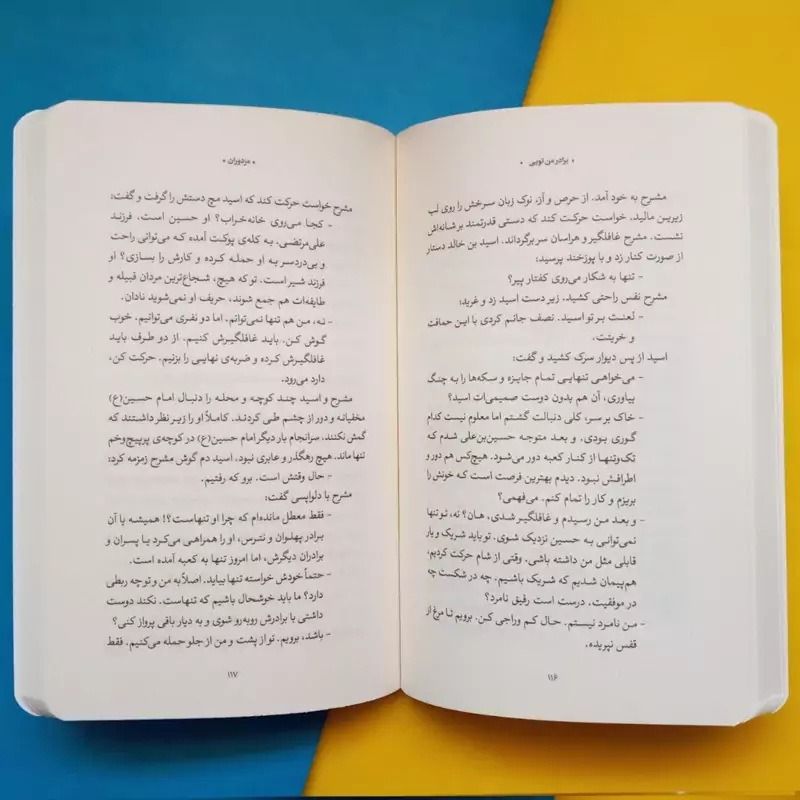 • برادر من تویی •
مشرح به خود آمد. از حرص و آز، نوک زبان سرخش را روی لب
زیرین مالید. خواست حرکت کند که دستی قدرتمند بر شانه‌اش
نشست. مشرح غافلگیر و هراسان سر برگرداند. اسید بن خالد دستار
از صورت کنار زد و با پوزخند پرسید:
- تنها به شکار می‌روی کفتار پیر؟
مشرح نفس راحتی کشید. زیر دست اسید زد و غرید:
- لعنت بر تو اسید. نصف جانم کردی با این حماقت
و خریتت.
اسید از پس دیوار سرک کشید و گفت:
- می‌خواهی تنهایی تمام جایزه و سکه‌ها را به چنگ
بیاوری، آن هم بدون دوست صمیمی‌ات اسید؟
- خاک بر سر، کلی دنبالت گشتم اما معلوم نیست کدام
گوری بودی. و بعد متوجه حسین‌بن‌علی شدم که
تک‌وتنها از کنار کعبه دور می‌شود. هیچ‌کس هم دور و
اطرافش نبود. دیدم بهترین فرصت است که خونش را
بریزم و کار را تمام کنم. می‌فهمی؟
- و بعد من رسیدم و غافلگیر شدی، هان؟ نه، تو تنها
نمی‌توانی به حسین نزدیک شوی. تو باید شریک و یار
قابلی مثل من داشته باشی. وقتی از شام حرکت کردیم،
هم‌پیمان شدیم که شریک باشیم. چه در شکست چه
در موفقیت. درست است رفیق نامرد؟
- من نامرد نیستم. حال کم وراجی کن. برویم تا مرغ از
قفس نپریده.
۱۱۶
• مزدوران •
مشرح خواست حرکت کند که اسید مچ دستش را گرفت و گفت:
- کجا می‌روی خانه‌خراب؟ او حسین است، فرزند
علی‌مرتضی. به کله‌ی پوکت آمده که می‌توانی راحت
و بی‌دردسر به او حمله کرده و کارش را بسازی؟ او
فرزند شیر است. تو که هیچ، شجاع‌ترین مردان قبیله و
طایفه‌ات هم جمع شوند، حریف او نمی‌شوید نادان.
- نه، من هم تنها نمی‌توانم. اما دو نفری می‌توانیم. خوب
گوش کن. باید غافلگیرش کنیم. از دو طرف باید
غافلگیرش کرده و ضربه‌ی نهایی را بزنیم. حرکت کن،
دارد می‌رود.
مشرح و اسید چند کوچه و محله را دنبال امام حسین(ع)
مخفیانه و دور از چشم طی کردند. کاملاً او را زیر نظر داشتند که
گمش نکنند. سرانجام بار دیگر امام حسین(ع) در کوچه‌ی پرپیچ‌وخم
تنها ماند. هیچ رهگذر و عابری نبود، اسید دم گوش مشرح زمزمه کرد:
- حال وقتش است. برو که رفتیم.
مشرح با دلواپسی گفت:
- فقط معطل مانده‌ام که چرا او تنهاست؟! همیشه یا آن
برادر پهلوان و نترس، او را همراهی می‌کرد یا پسران و
برادران دیگرش، اما امروز تنها به کعبه آمده است.
- حتماً خودش خواسته تنها بیاید. اصلاً به من و تو چه ربطی
دارد؟ ما باید خوشحال باشیم که تنهاست. نکند دوست
داشتی با برادرش روبه‌رو شوی و به دیار باقی پرواز کنی؟
- باشد، برویم. تو از پشت و من از جلو حمله می‌کنیم. فقط
۱۱۷